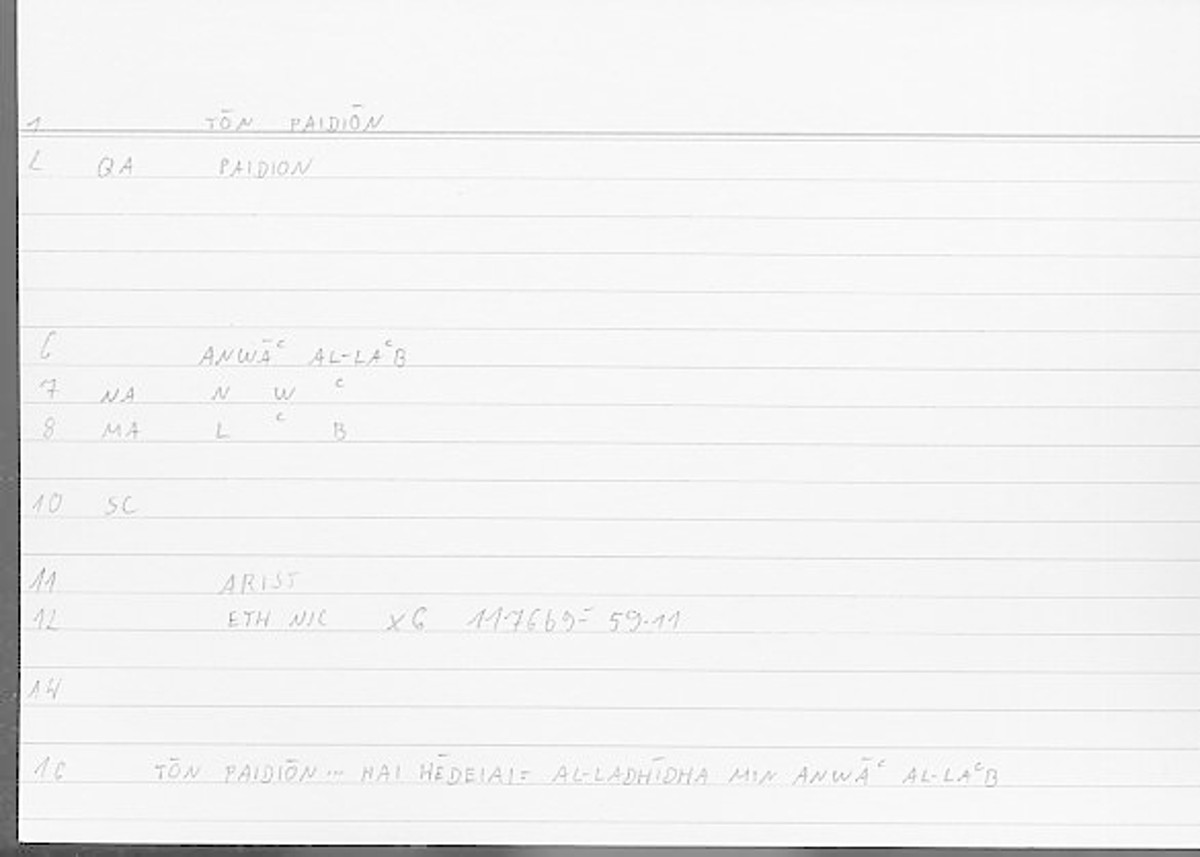 1 TŌN PAIDIŌN
2 QA PAIDION
6 ANWĀᶜ AL-LAᶜB
7 NA N W ᶜ
8 MA L ᶜ B
10 SC
11 ARIST
12 ETH NIC X6 1176b9= 59.11
14
16 TŌN PAIDIŌN... HAI HĒDEIAI= AL-LADHĪDHA MIN ANWĀᶜ AL-LAᶜB